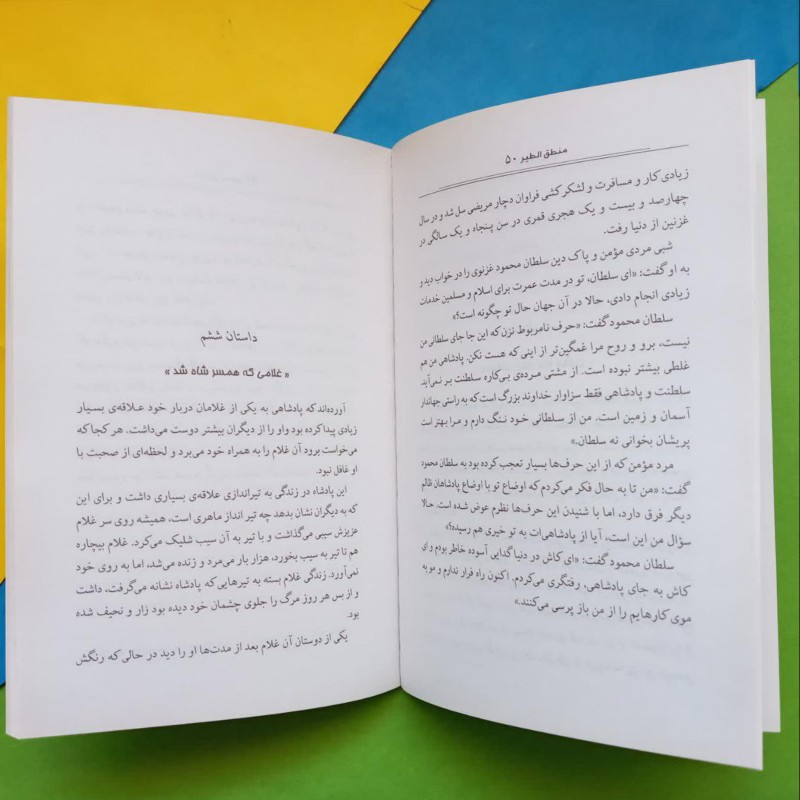 منطق الطیر ۵۰
زیادی کار و مسافرت و لشکرکشی فراوان دچار مریضی سل شد و در سال
چهارصد و بیست و یک هجری قمری در سن پنجاه و یک سالگی در
غزنین از دنیا رفت.
شبی مردی مؤمن و پاک دین سلطان محمود غزنوی را در خواب دید و
به او گفت: «ای سلطان، تو در مدت عمرت برای اسلام و مسلمین خدمات
زیادی انجام دادی، حالا در آن جهان حال تو چگونه است؟»
سلطان محمود گفت: «حرف نامربوط نزن که این جا جای سلطانی من
نیست، برو و روح مرا غمگین‌تر از اینی که هست نکن. پادشاهی من هم
غلطی بیشتر نبوده است. از مشتی مرده‌ی بی‌کاره سلطنت بر نمی‌آید
سلطنت و پادشاهی فقط سزاوار خداوند بزرگ است که به راستی جهاندار
آسمان و زمین است. من از سلطانی خود ننگ دارم و مرا بهتر است
پریشان بخوانی نه سلطان.»
مرد مؤمن که از این حرف‌ها بسیار تعجب کرده بود به سلطان محمود
گفت: «من تا به حال فکر می‌کردم که اوضاع تو با اوضاع پادشاهان ظالم
دیگر فرق دارد، اما با شنیدن این حرف‌ها نظرم عوض شده است. حالا
سؤال من این است، آیا از پادشاهی‌ات به تو خیری هم رسیده؟»
سلطان محمود گفت: «ای کاش در دنیا گدایی آسوده خاطر بودم و ای
کاش به جای پادشاهی، رفتگری می‌کردم. اکنون راه فرار ندارم و مو به
موی کارهایم را از من باز پرسی می‌کنند.»
داستان ششم
«غلامی که همسر شاه شد»
آورده‌اند که پادشاهی به یکی از غلامان دربار خود علاقه‌ی بسیار
زیادی پیدا کرده بود واو را از دیگران بیشتر دوست می‌داشت. هر کجا که
می‌خواست برود آن غلام را به همراه خود می‌برد و لحظه‌ای از صحبت با
او غافل نبود.
این پادشاه در زندگی به تیراندازی علاقه‌ی بسیاری داشت و برای این
که به دیگران نشان بدهد چه تیر انداز ماهری است، همیشه روی سر غلام
عزیزش سیبی می‌گذاشت و با تیر به آن سیب شلیک می‌کرد. غلام بیچاره
هم تا تیر به سیب بخورد، هزار بار می‌مرد و زنده می‌شد، اما به روی خود
نمی‌آورد. زندگی غلام بسته به تیرهایی که پادشاه نشانه می‌گرفت، داشت
و از بس هر روز مرگ را جلوی چشمان خود دیده بود زار و نحیف شده
بود.
یکی از دوستان آن غلام بعد از مدت‌ها او را دید در حالی که رنگش